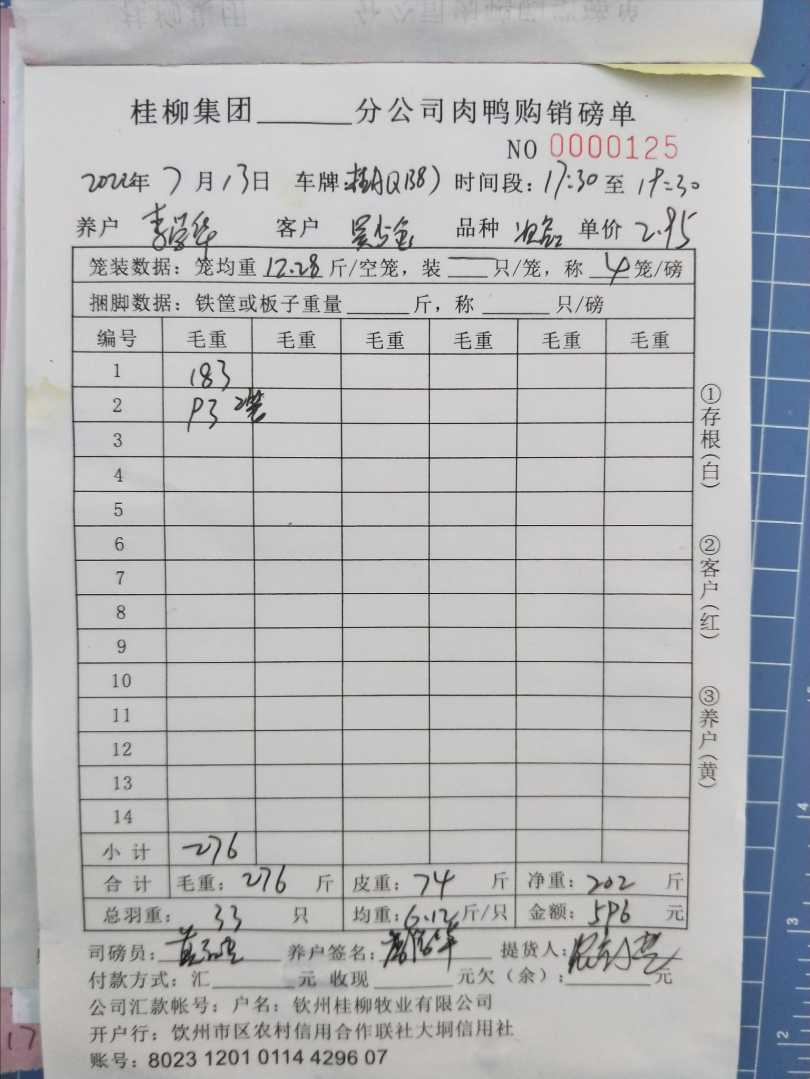 桂柳集团______分公司肉鸭购销磅单
NO 0000125
2022年 7月13日 车牌: 时间段: 17:30 至 19:30
养户 李学华 客户 品种 单价 2.95
笼装数据：笼均重 12.28 斤/空笼，装 — 只/笼，称 4 笼/磅
捆脚数据：铁筐或板子重量______斤，称______只/磅
编号 毛重 毛重 毛重 毛重 毛重 毛重
1 183
2 93 2笼
3
4
5
6
7
8
9
10
11
12
13
14
小计 276
合计 毛重: 276 斤 皮重: 74 斤 净重: 202 斤
总羽重: 33 只 均重: 6.12 斤/只 金额: 596 元
司磅员: 养户签名: 提货人:
付款方式：汇______元 收现______元欠（余）:______元
公司汇款帐号：户名：钦州桂柳牧业有限公司
开户行：饮州市区农村信用合作联社大垌信用社
账号：8023 1201 0114 4296 07
①存根(白)
②客户(红)
③养户(黄)
17